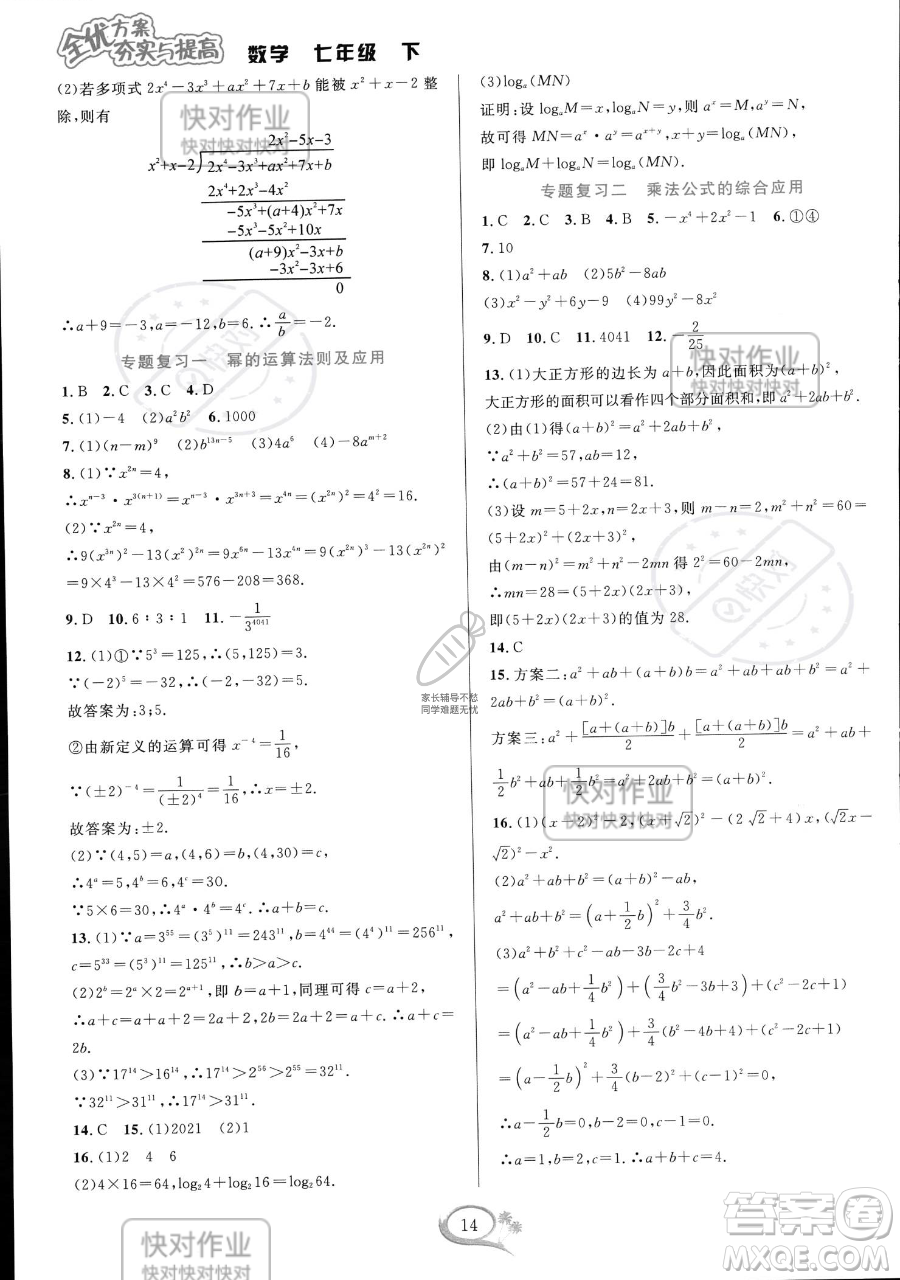 全优方案
夯实与提高 数学 七年级 下
(2)若多项式 2x⁴−3x³+ax²+7x+b 能被 x²+x−2 整
除,则有
2x²−5x−3
x²+x−2 2x⁴−3x³+ax²+7x+b
2x⁴+2x³−4x²
−5x³+(a+4)x²+7x
−5x³−5x²+10x
(a+9)x²−3x+b
−3x²−3x+6
0
∴a+9=−3,a=−12,b=6.∴a/b=−2.
专题复习一 幂的运算法则及应用
1.B 2.C 3.C 4.D
5.(1)−4 (2)a²b² 6.1000
7.(1)(n−m)⁹ (2)b¹³ⁿ⁻⁵ (3)4a⁶ (4)−8aᵐ⁺²
8.(1)∵x²ⁿ=4,
∴xⁿ⁻³·x³⁽ⁿ⁺¹⁾=xⁿ⁻³·x³ⁿ⁺³=x⁴ⁿ=(x²ⁿ)²=4²=16.
(2)∵x²ⁿ=4,
∴9(x³ⁿ)²−13(x²)²ⁿ=9x⁶ⁿ−13x⁴ⁿ=9(x²ⁿ)³−13(x²ⁿ)²
=9×4³−13×4²=576−208=368.
9.D 10.6∶3∶1 11.−1/3⁴⁰⁴¹
12.(1)①∵5³=125,∴(5,125)=3.
∵(−2)⁵=−32,∴(−2,−32)=5.
故答案为:3;5.
②由新定义的运算可得 x⁻⁴=1/16,
∵(±2)⁻⁴=1/(±2)⁴=1/16,
故答案为:±2.
(2)∵(4,5)=a,(4,6)=b,(4,30)=c,
∴4ᵃ=5,4ᵇ=6,4ᶜ=30.
∵5×6=30,∴4ᵃ·4ᵇ=4ᶜ.∴a+b=c.
13.(1)∵a=3⁵⁵=(3⁵)¹¹=243¹¹,b=4⁴⁴=(4⁴)¹¹=256¹¹,
c=5³³=(5³)¹¹=125¹¹,∴b>a>c.
(2)2ᵇ=2ᵃ×2=2ᵃ⁺¹,即 b=a+1,同理可得 c=a+2,
∴a+c=a+a+2=2a+2=2(a+1)=2b.∴a+c=
2b.
(3)∵17¹⁴>16¹⁴,∴17¹⁴>2⁵⁶>2⁵⁵
∵32¹¹>31¹¹,∴2⁵⁵>31¹¹.∴17¹⁴>31¹¹.
14.C 15.(1)2021 (2)1
16.(1)2 4 6
(2)4×16=64,log₂4+log₂16=log₂64.
(3)logₐ(MN)
证明:设 logₐM=x,logₐN=y,则 aˣ=M,aʸ=N,
故可得 MN=aˣ·aʸ=aˣ⁺ʸ,x+y=logₐ(MN),
即 logₐM+logₐN=logₐ(MN).
专题复习二 乘法公式的综合应用
1.C 2.C 3.B 4.B 5.−x⁴+2x²−1 6.①④
7.10
8.(1)a²+ab (2)5b²−8ab
(3)x²−y²+6y−9 (4)99y²−8x²
9.D 10.C 11.4041 12.−2/25
13.(1)大正方形的边长为 a+b,因此面积为(a+b)²,
大正方形的面积可以看作四个部分面积和,即 a²+2ab+b².
(2)由(1)得(a+b)²=a²+b²+2ab,
∵a²+b²=57,ab=12,
∴(a+b)²=57+24=81.
(3)设 m=5+2x,n=2x+3,则 m−n=2,m²+n²=60=
(5+2x)²+(2x+3)²,
由(m−n)²=m²+n²−2mn 得 2²=60−2mn,
∴mn=28=(5+2x)(2x+3),
即(5+2x)(2x+3)的值为 28.
14.C
15.方案二:a²+ab+(a+b)b=a²+ab+ab+b²=a²+
2ab+b²=(a+b)².
方案三:a²+[a+(a+b)]b/2+[a+(a+b)]b/2=a²+ab+
1/2b²+ab+1/2b²=a²+2ab+b²=(a+b)².
16.(1)(x−2)²−2,(x+√2)²−(2√2+4)x,(√2x−
√2)²−x².
(2)a²+ab+b²=(a+b)²−ab,
a²+ab+b²=(a+1/2b)²+3/4b².
(3)a²+b²+c²−ab−3b−2c+4
=(a²−ab+1/4b²)+(3/4b²−3b+3)+(c²−2c+1)
=(a²−ab+1/4b²)+3/4(b²−4b+4)+(c²−2c+1)
=(a−1/2b)²+3/4(b−2)²+(c−1)²=0,
∴a−1/2b=0,b−2=0,c−1=0,
∴a=1,b=2,c=1.∴a+b+c=4.
14
快对作业
快对快对快对
快对作业
快对快对快对
快对作业
快对快对快对
快对作业
快对快对快对
快对作业
快对快对快对
快对
家长辅导不愁
同学难题无忧
答案圈
MXQE.COM